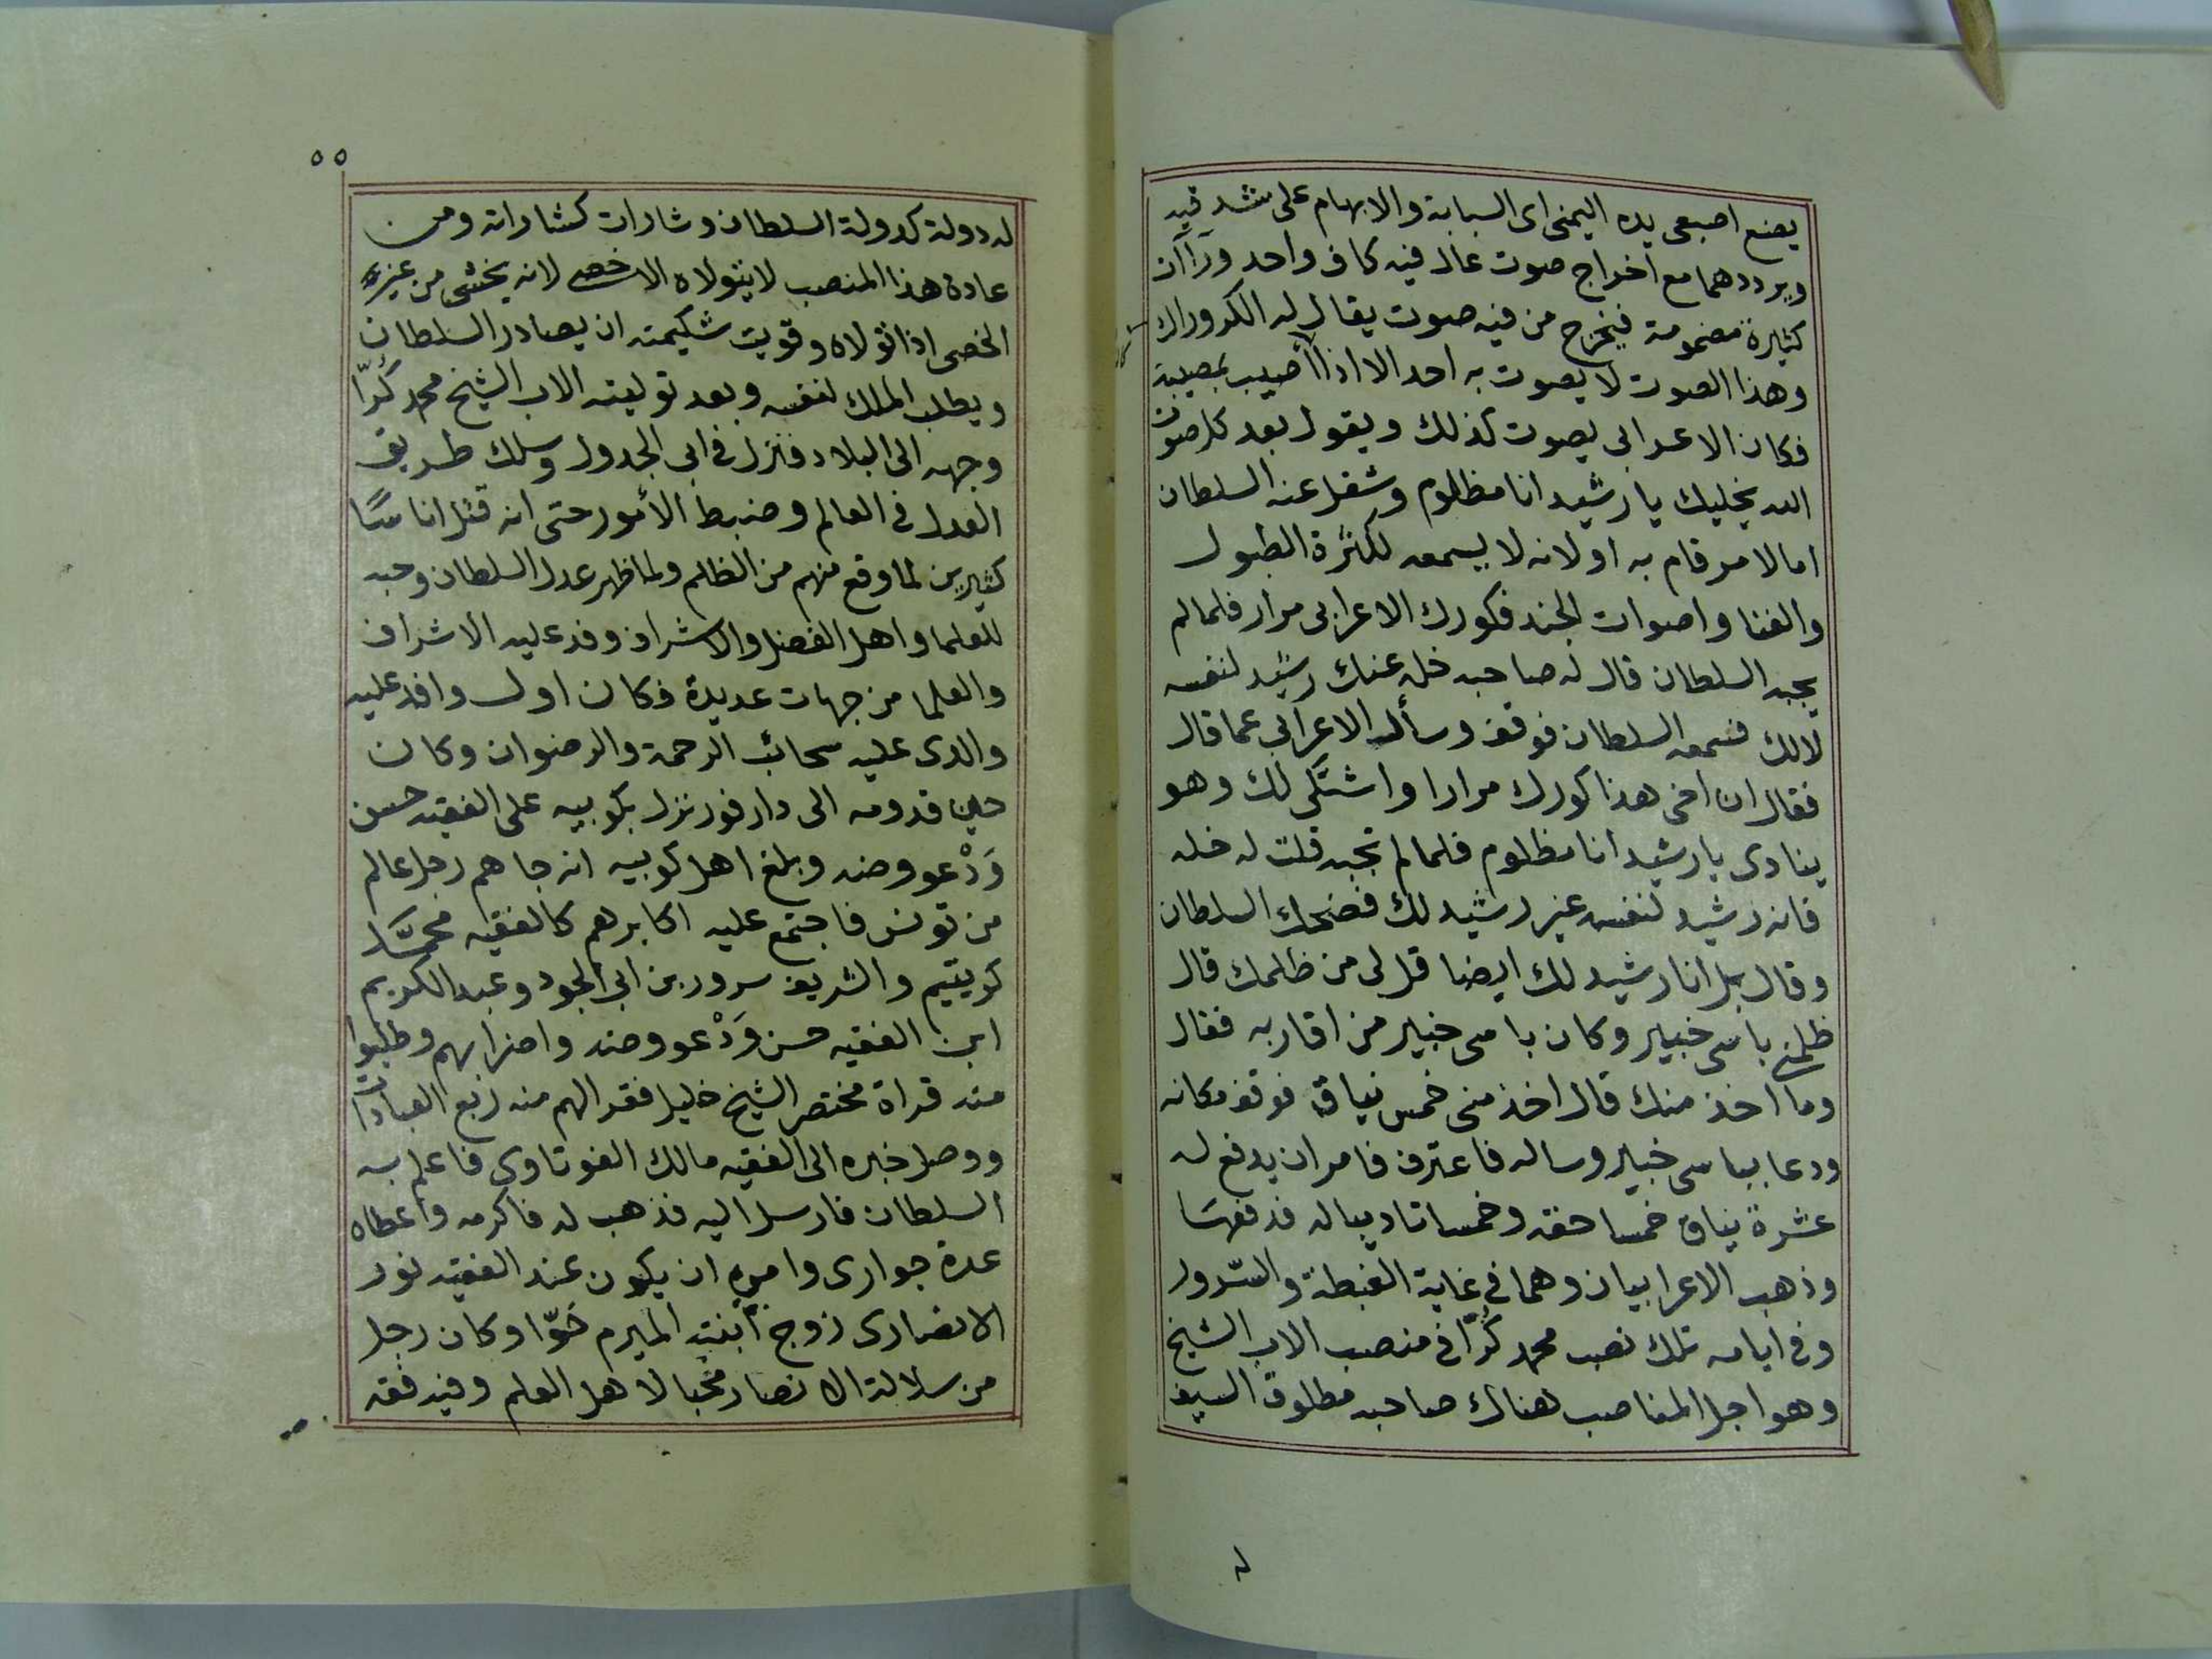 يضع اصبعى يده اليمنى اى السبابة والابهام على شدقيه
ويرددهما مع اخراج صوت عال فيه كاف واحد ورآآن
كثيرة مضمومة فيخرج من فيه صوت يقال له الكروراك
وهذا الصوت لا يصوت به احد الا اذا أصيب بمصيبة
فكان الاعرابى يصوت كذلك ويقول بعد كل صوت
الله يخليك يا رشيد انا مظلوم وشغل عنه السلطان
اما لامر قام به او لانه لا يسمعه لكثرة الطبول
والغنا واصوات الجند فكورك الاعرابى مرار فلما لم
يجبه السلطان قال له صاحبه خله عنك رشيد لنفسه
لالك فسمعه السلطان فوقف وسأل الاعرابى عما قال
فقال ان اخى هذا كورك مرارا واشتكى لك وهو
ينادى يا رشيد انا مظلوم فلما لم تجبه قلت له خله
فانه رشيد لنفسه غير رشيد لك فضحك السلطان
وقال بل انا رشيد لك ايضا قل لى من ظلمك قال
ظلمنى باسى خبير وكان باسى خبير من اقاربه فقال
وما اخذ منك قال اخذ منى خمس نياق فوقف مكانه
ودعا بباسى خبير وساله فاعترف فامر ان يدفع له
عشرة نياق خمسا حقه وخمسا تاديبا له فدفعها
وذهب الاعرابيان وهما فى غاية الغبطة والسّرور
وفى ايامه تلك نصب محمد كُرّا فى منصب الاب الشيخ
وهو اجل المناصب هناك صاحبه مطلوق السيف
له
٥٥
له دولة كدولة السلطان وشارات كشاراته ومن
عادة هذا المنصب لا يتولاه الا خصى لانه يخشى من غير
الخصى اذا تولاه وقويت شكيمته ان يصادر السلطان
ويطلب الملك لنفسه وبعد توليته الاب الشيخ محمد كُرّا
وجهه الى البلاد فنزل فى ابى الجدول وسلك طريق
العدل فى العالم وضبط الأمور حتى انه قتل اناسًا
كثيرين لما وقع منهم من الظلم ولما ظهر عدل السلطان وحبه
للعلما واهل الفضل والاشراف وفد عليه الاشراف
والعلما من جهات عديدة فكان اول وافد عليه
والدى عليه سحائب الرحمة والرضوان وكان
حين قدومه الى دارفور نزل بكوبيه على الفقيه حسن
وَدْعووضه وبلغ اهل كوبيه انه جاهم رجل عالم
من تونس فاجتمع عليه اكابرهم كالفقيه محمّد
كويتيم والشريف سرور بن ابى الجود وعبد الكريم
ابن الفقيه حسن وَدْعووضه واضرابهم وطلبوا
منه قراة مختصر الشيخ خليل فقرا لهم منه ربع العبادات
ووصل خبره الى الفقيه مالك الفوتاوى فاعلم به
السلطان فارسل اليه فذهب له فاكرمه واعطاه
عدة جوارى وامره ان يكون عند الفقيه نور
الانصارى زوج أبنته الميرم حَوّا وكان رجل
من سلالة الانصار محُبا لاهل العلم وفيه فقه